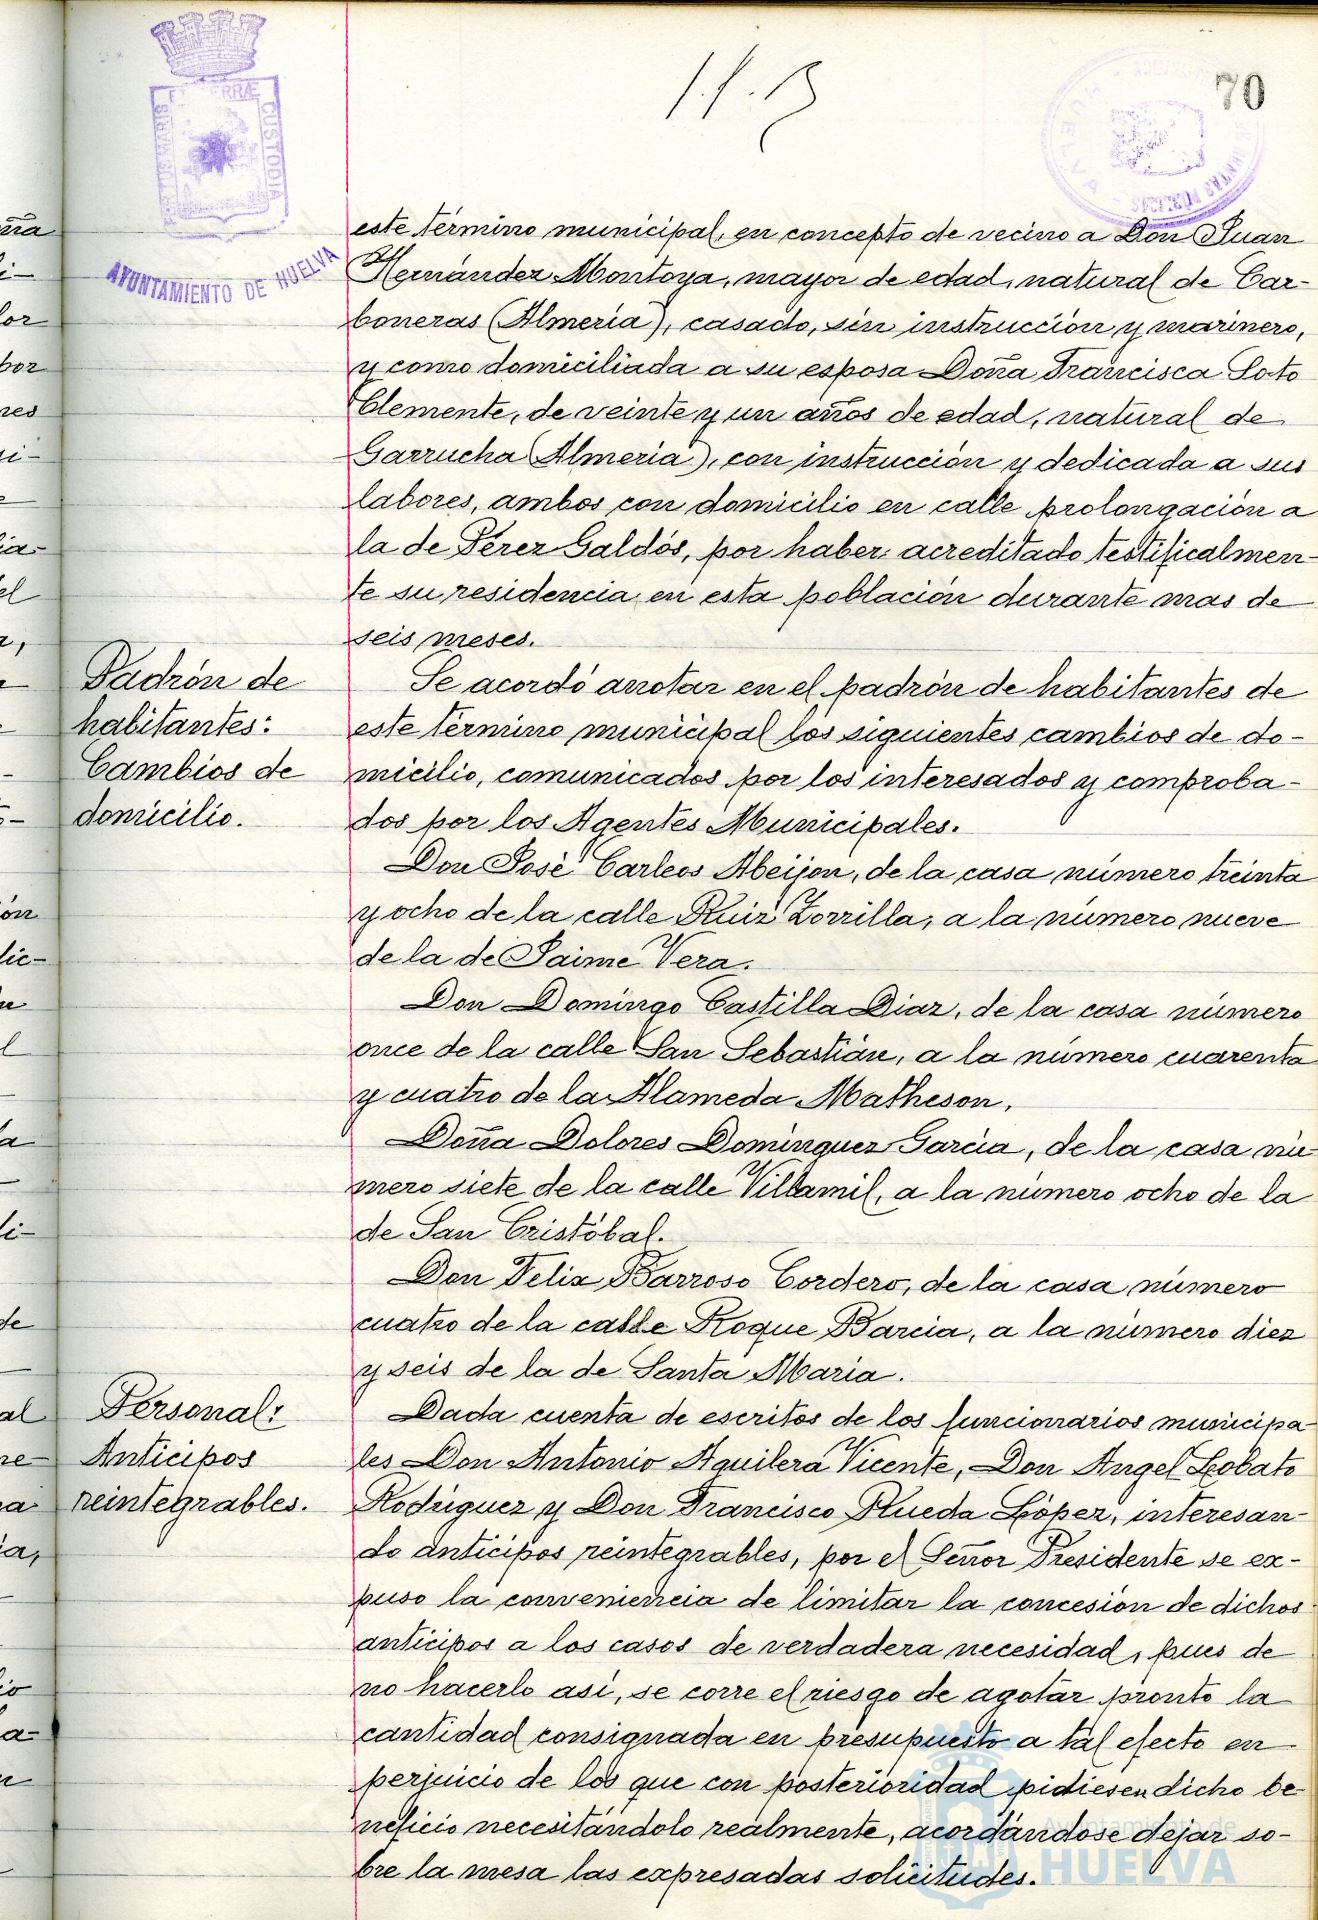 70
PORTUS MARIS ET TERRÆ CUSTODIA
AYUNTAMIENTO DE HUELVA
este término municipal, en concepto de vecino a Don Juan
Hernández Montoya, mayor de edad, natural de Car-
boneras (Almería), casado, sin instrucción y marinero,
y como domiciliada a su esposa Doña Francisca Soto
Clemente, de veinte y un años de edad, natural de
Garrucha (Almería), con instrucción y dedicada a sus
labores, ambos con domicilio en calle prolongación a
la de Pérez Galdós, por haber acreditado testificalmen-
te su residencia en esta población durante mas de
seis meses.
Padrón de
habitantes:
Cambios de
domicilio.
Se acordó anotar en el padrón de habitantes de
este término municipal los siguientes cambios de do-
micilio, comunicados por los interesados y comproba-
dos por los Agentes Municipales.
Don José Carleos Abeijon, de la casa número treinta
y ocho de la calle Ruiz Zorrilla, a la número nueve
de la de Jaime Vera.
Don Domingo Castilla Diaz, de la casa número
once de la calle San Sebastián, a la número cuarenta
y cuatro de la Alameda Matheson.
Doña Dolores Dominguez Garcia, de la casa nú-
mero siete de la calle Villamil, a la número ocho de la
de San Cristóbal.
Don Felix Barroso Cordero, de la casa número
cuatro de la calle Roque Barcia, a la número diez
y seis de la de Santa Maria.
Personal:
Anticipos
reintegrables.
Dada cuenta de escritos de los funcionarios municipa
les Don Antonio Aguilera Vicente, Don Angel Lobato
Rodríguez y Don Francisco Rueda López, interesan-
do anticipos reintegrables, por el Señor Presidente se ex-
puso la conveniencia de limitar la concesión de dichos
anticipos a los casos de verdadera necesidad, pues de
no hacerlo así, se corre el riesgo de agotar pronto la
cantidad consignada en presupuesto a tal efecto en
perjuicio de los que con posterioridad pidiesen dicho be-
neficio necesitándolo realmente, acordándose dejar so-
bre la mesa las expresadas solicitudes.
Ayuntamiento de
HUELVA